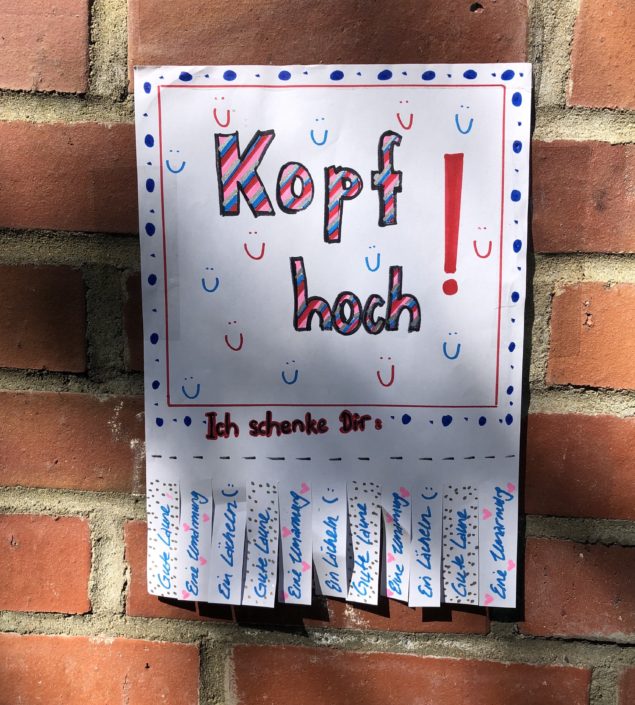 Kopf
hoch!
Ich schenke Dir:
Gute Laune
Eine Umarmung
Ein Lächeln (:
Gute Laune
Eine Umarmung
Ein Lächeln (:
Gute Laune
Eine Umarmung
Ein Lächeln (:
Gute Laune
Eine Umarmung